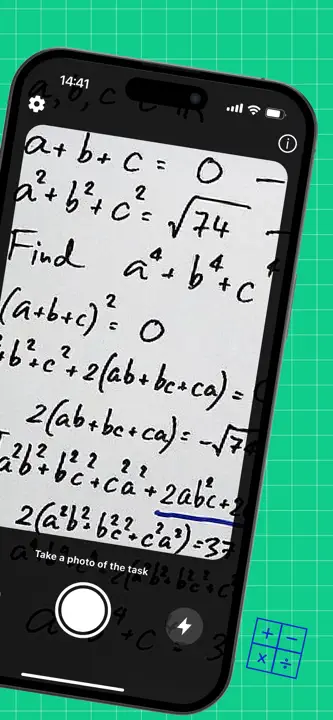 14:41
a, b, c ∈ ℝ
a + b + c = 0 —
a² + b² + c² = √74 —
Find a⁴ + b⁴ + c⁴
(a+b+c)² = 0
+b² + c² + 2(ab+bc+ca) =
2(ab+bc+ca) = -√74
a²b² + b²c² + c²a² + 2ab²c + 2
2(a²b² + b²c² + c²a²) = 37
Take a photo of the task
+ −
× ÷